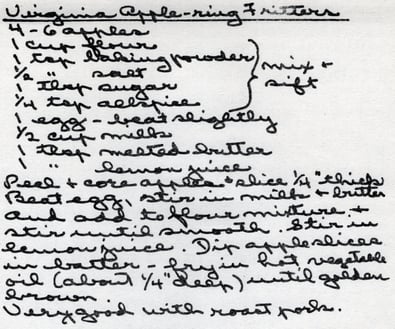 Virginia Apple-ring Fritters
4-6 apples
1 cup flour
1 tsp baking powder
1/2 " salt
1 tbsp sugar
1/4 tsp allspice
mix +
sift
1 egg - beat slightly
1/2 cup milk
1 tbsp melted butter
1 " lemon juice
Peel + core apples + slice 1/4" thick
Beat egg, stir in milk + butter
and add to flour mixture +
stir until smooth. Stir in
lemon juice. Dip apple slices
in batter - fry in hot vegetable
oil (about 1/4" deep) until golden
brown.
Very good with roast pork.